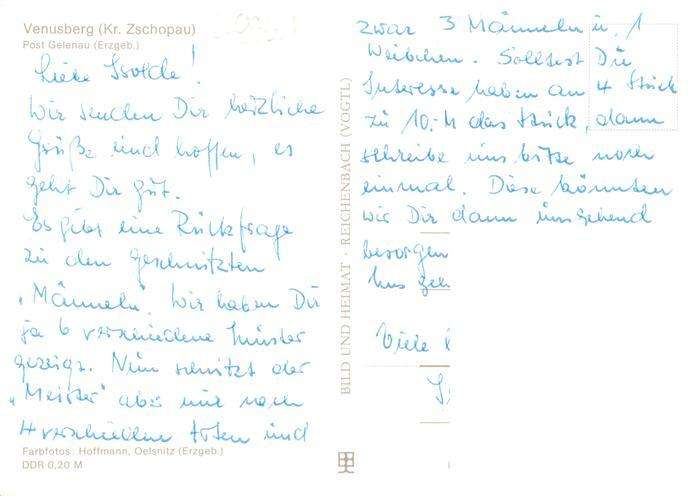 Venusberg (Kr. Zschopau)
Post Gelenau (Erzgeb.)
Liebe Isolde!
Wir senden Dir herzliche
Grüße und hoffen, es
geht Dir gut.
Es gibt eine Rückfrage
zu den geschnitzten
"Männeln". Wir haben Dir
ja 6 verschiedene Muster
gezeigt. Nun schnitzt der
"Meister" aber nur noch
4 verschiedene Arten und
Farbfotos: Hoffmann, Oelsnitz (Erzgeb.)
DDR 0,20 M
BILD UND HEIMAT · REICHENBACH (VOGTL)
zwar 3 Männeln u. 1
Weibchen. Solltest Du
Interesse haben an 4 Stück
zu 10,-M das Stück, dann
schreibe uns bitte noch
einmal. Diese könnten
wir Dir dann umgehend
besorgen
Uns geh
Viele